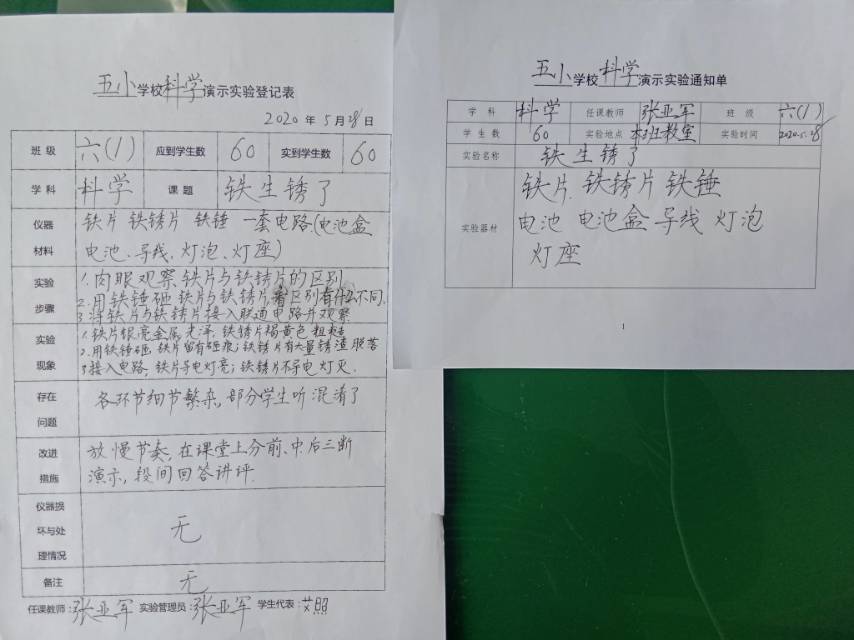 五小学校科学演示实验登记表
2020年5月28日
班级 六(1) 应到学生数 60 实到学生数 60
学科 科学 课题 铁生锈了
仪器材料 铁片 铁锈片 铁锤 一套电路(电池盒
电池、导线、灯泡、灯座)
实验步骤 1.肉眼观察铁片与铁锈片的区别
2.用铁锤砸铁片与铁锈片,看区别有什么不同.
3.将铁片与铁锈片接入联通电路并观察
实验现象 1.铁片银亮金属光泽,铁锈片褐黄色粗糙
2.用铁锤砸,铁片留有砸痕;铁锈片有大量锈渣脱落
3.接入电路,铁片导电灯亮;铁锈片不导电灯灭.
存在问题 各环节细节繁杂,部分学生听混淆了
改进措施 放慢节奏,在课堂上分前、中、后三断
演示,段间回答讲评.
仪器损坏与处理情况 无
备注 无
任课教师:张亚军 实验管理员:张亚军 学生代表:艾照
五小学校科学演示实验通知单
学科 科学 任课教师 张亚军 班级 六(1)
学生数 60 实验地点 本班教室 实验时间 2020.5.28
实验名称 铁生锈了
实验器材 铁片 铁锈片 铁锤
电池 电池盒 导线 灯泡
灯座
1